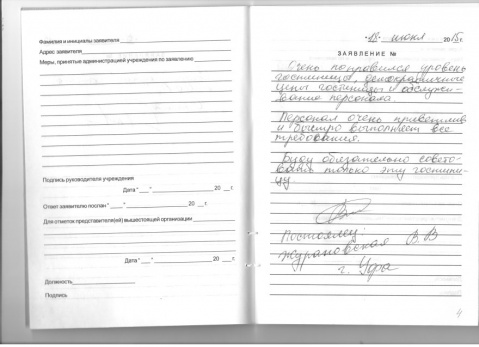 Фамилия и инициалы заявителя
Адрес заявителя
Меры, принятые администрацией учреждения по заявлению
Подпись руководителя учреждения
Дата " " 20 г.
Ответ заявителю послан " " 20 г.
Для отметок представителя(ей) вышестоящей организации
Дата " " 20 г.
Должность
Подпись
"18" июня 2015г.
ЗАЯВЛЕНИЕ №
Очень понравился уровень
гостиницы, демократичные
цены гостиницы и обслужи-
вание персонала.
Персонал очень приветлив
и быстро выполняет все
требования.
Буду обязательно совето-
вать только эту гостини-
цу
Постоялец:
Журановская В.В
г. Уфа
4